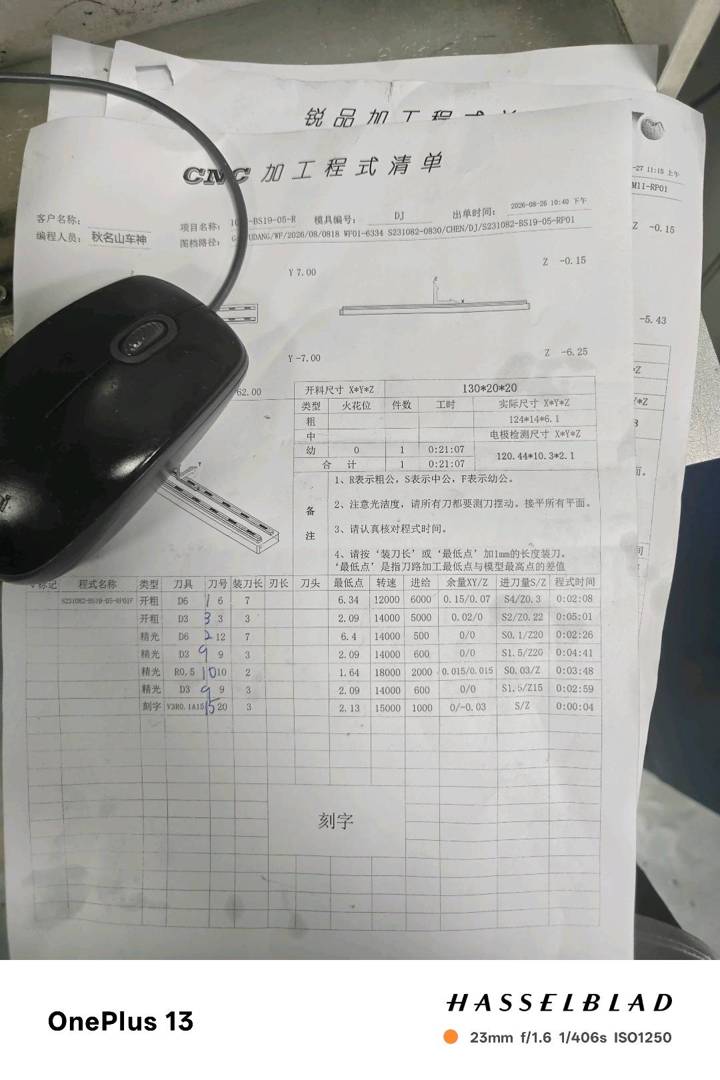 锐品加工程式单
-27 11:15 上午
M1I-RP01
Z -0.15
-5.43
CNC 加工程式清单
客户名称:
项目名称: -BS19-05-R 模具编号: DJ 出单时间: 2026-08-26 10:40 下午
编程人员: 秋名山车神 图档路径: UDANG/WF/2026/08/0818 WF01-6334 S231082-0830/CHEN/DJ/S231082-BS19-05-RP01
Y 7.00
Z -0.15
Y -7.00
Z -6.25
62.00
开料尺寸 X*Y*Z 130*20*20
类型 火花位 件数 工时 实际尺寸 X*Y*Z
粗 124*14*6.1
中 电极检测尺寸 X*Y*Z
幼 0 1 0:21:07 120.44*10.3*2.1
合 计 1 0:21:07
备注
1、R表示粗公,S表示中公,F表示幼公。
2、注意光洁度,请所有刀都要测刀摆动。接平所有平面。
3、请认真核对程式时间。
4、请按‘装刀长’或‘最低点’加1mm的长度装刀。
‘最低点’是指刀路加工最低点与模型最高点的差值
标记 程式名称 类型 刀具 刀号 装刀长 刃长 刀头 最低点 转速 进给 余量XY/Z 进刀量S/Z 程式时间
S231082-BS19-05-RP01F 开粗 D6 1 6 7 6.34 12000 6000 0.15/0.07 S4/Z0.3 0:02:08
开粗 D3 3 3 3 2.09 14000 5000 0.02/0 S2/Z0.22 0:05:01
精光 D6 2 12 7 6.4 14000 500 0/0 S0.1/Z20 0:02:26
精光 D3 9 9 3 2.09 14000 600 0/0 S1.5/Z20 0:04:41
精光 R0.5 10 10 2 1.64 18000 2000 0.015/0.015 S0.03/Z 0:03:48
精光 D3 9 9 3 2.09 14000 600 0/0 S1.5/Z15 0:02:59
刻字 V3R0.1A15 15 20 3 2.13 15000 1000 0/-0.03 S/Z 0:00:04
刻字
OnePlus 13
HASSELBLAD
23mm f/1.6 1/406s ISO1250